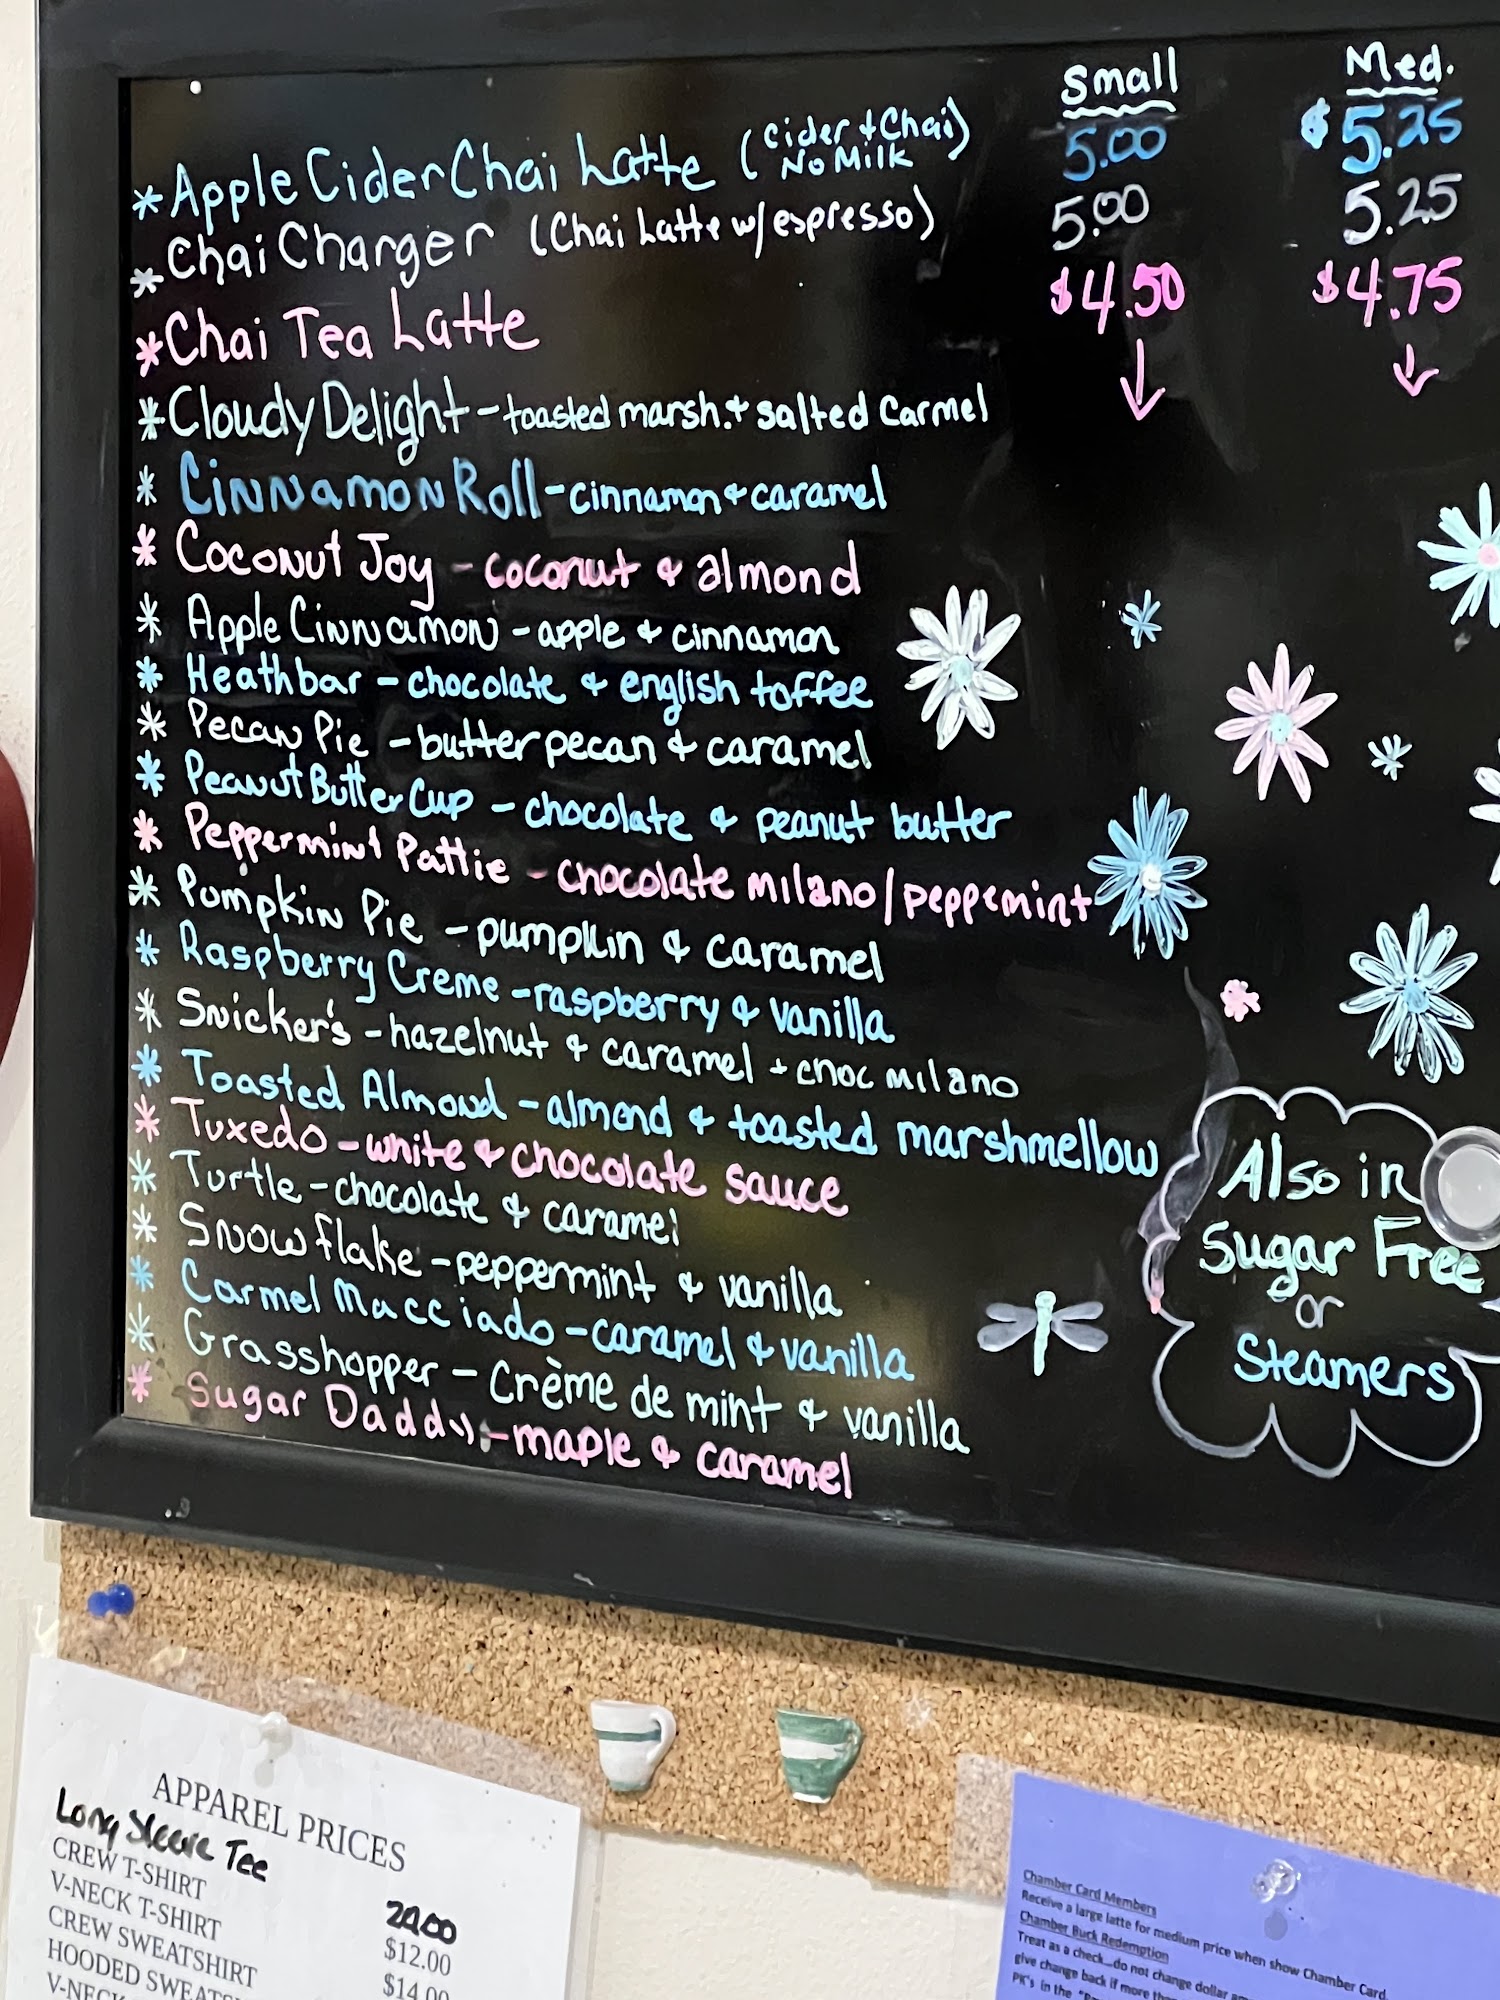 Small Med.
* Apple Cider Chai Latte (Cider + Chai) No Milk 5.00 $5.25
* Chai Charger (Chai Latte w/espresso) 5.00 5.25
* Chai Tea Latte $4.50 $4.75
* Cloudy Delight - toasted marsh. & salted Carmel
* Cinnamon Roll - cinnamon & caramel
* Coconut Joy - coconut & almond
* Apple Cinnamon - apple & cinnamon
* Heathbar - chocolate & english toffee
* Pecan Pie - butter pecan & caramel
* Peanut Butter Cup - chocolate & peanut butter
* Peppermint Pattie - chocolate milano/peppemint
* Pumpkin Pie - pumpkin & caramel
* Raspberry Creme - raspberry & vanilla
* Snicker's - hazelnut & caramel + choc milano
* Toasted Almond - almond & toasted marshmellow
* Tuxedo - white & chocolate sauce
* Turtle - chocolate & caramel
* Snowflake - peppermint & vanilla
* Carmel Macciado - caramel & vanilla
* Grasshopper - Crème de mint & vanilla
* Sugar Daddy - maple & caramel
Also in
Sugar Free
or
Steamers
APPAREL PRICES
Long Sleeve Tee
CREW T-SHIRT
V-NECK T-SHIRT $12.00
CREW SWEATSHIRT $14.00
HOODED SWEATS
V-NECK
Chamber Card Members
Receive a large latte for medium price when show Chamber Card.
Chamber Buck Redemption
Treat as a check...do not change dollar
give change back if more
PK's in the